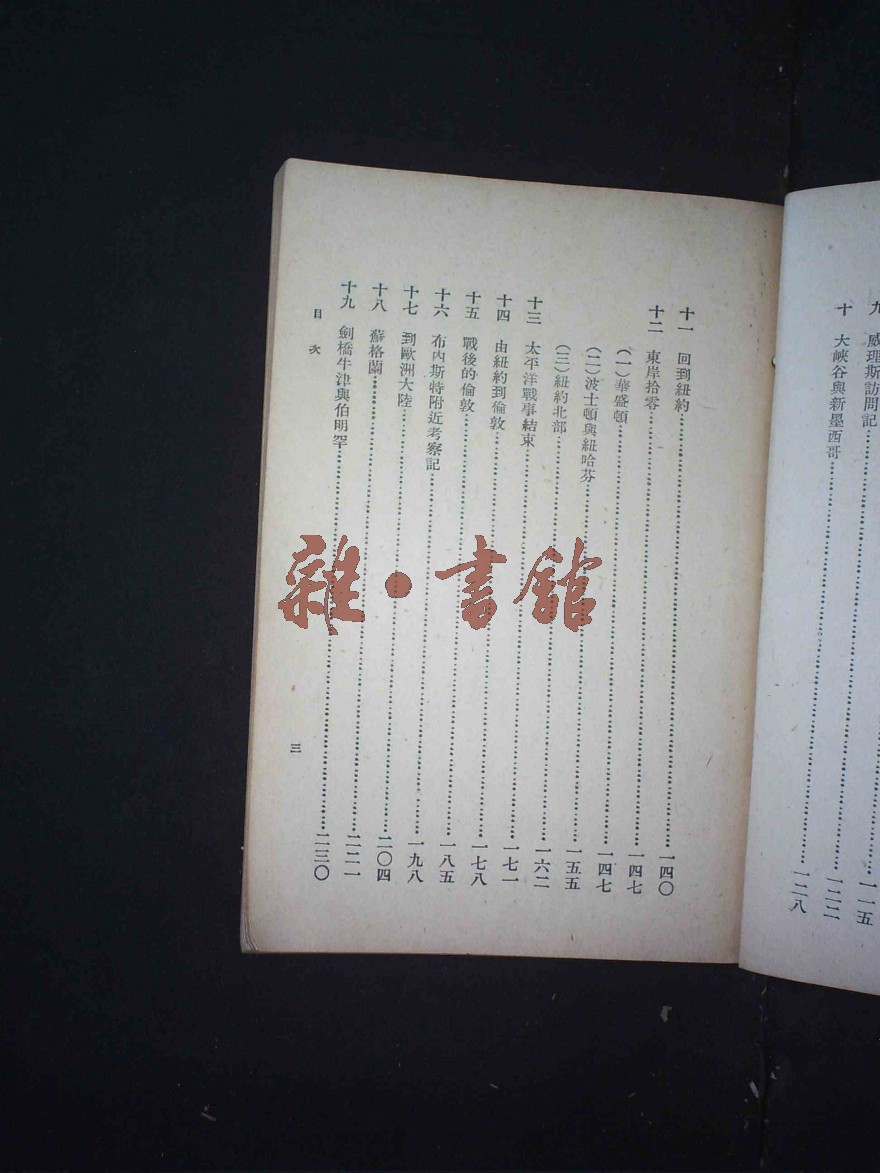 一一五
九　威理斯訪問記……一二二
十　大峽谷與新墨西哥……一二八
十一　回到紐約……一四〇
十二　東岸拾零……一四七
（一）華盛頓……一四七
（二）波士頓與紐哈芬……一五五
（三）紐約北部……一六二
十三　太平洋戰事結束……一七一
十四　由紐約到倫敦……一七八
十五　戰後的倫敦……一八五
十六　布內斯特附近考察記……一九八
十七　到歐洲大陸……二〇四
十八　蘇格蘭……二二一
十九　劍橋牛津與伯明罕……二三〇
目次
三
雜·書館